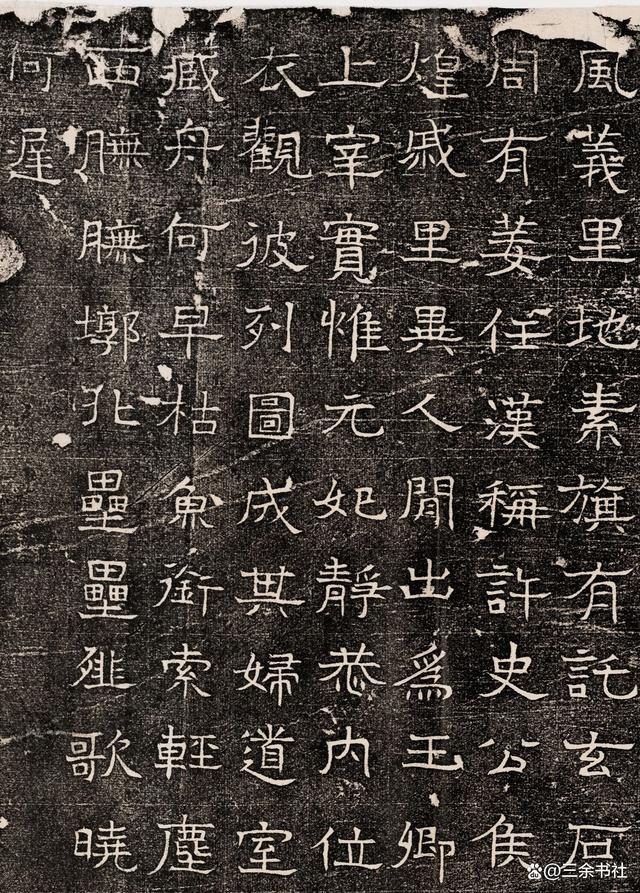 風義里地素旗有託玄石
周有姜任漢稱許史公侯
煌戚里異人閒出為王卿
上宰實惟元妃靜恭内位
衣觀彼列圖成其婦道室
藏舟何早枯魚銜索輕塵
西膴膴墎北壘壘歌曉
何遲
@三余书社